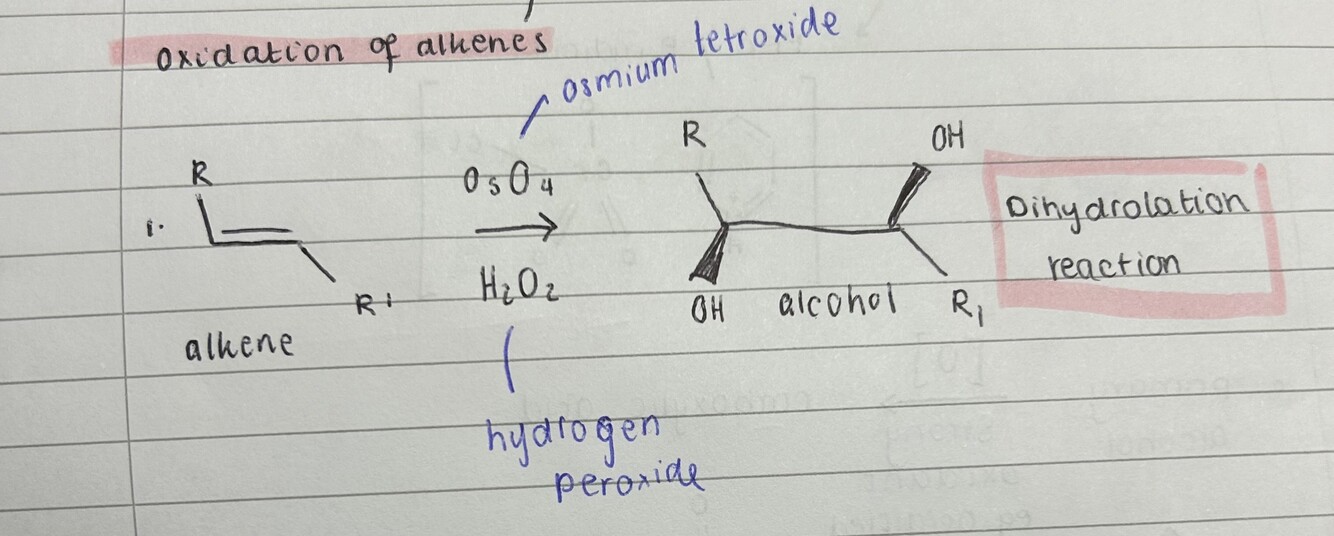 oxidation of alkenes
osmium tetroxide
R
OH
R
OsO4
1.
Dihydrolation
reaction
H2O2
R'
OH
alcohol
R1
alkene
hydrogen
peroxide